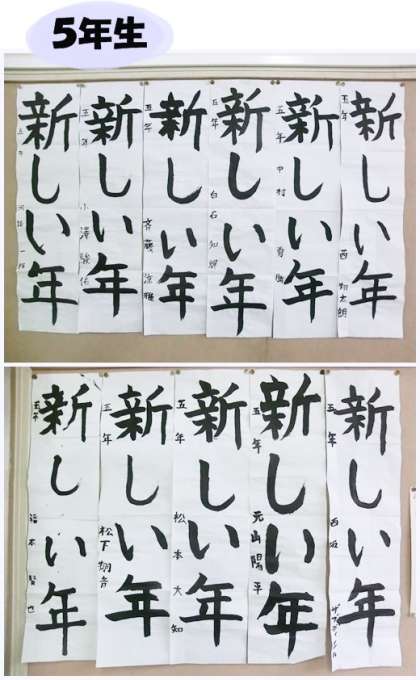 5年生
新しい年
五年 西 翔太朗
新しい年
五年 中村
新しい年
五年 白石
新しい年
五年 斉藤 涼雅
新しい年
五年 小澤
新しい年
五年
新しい年
五年 西坂
新しい年
五年 元山 陽平
新しい年
五年 松本大知
新しい年
五年 松下 翔音
新しい年
五年 福本賢也
新しい年